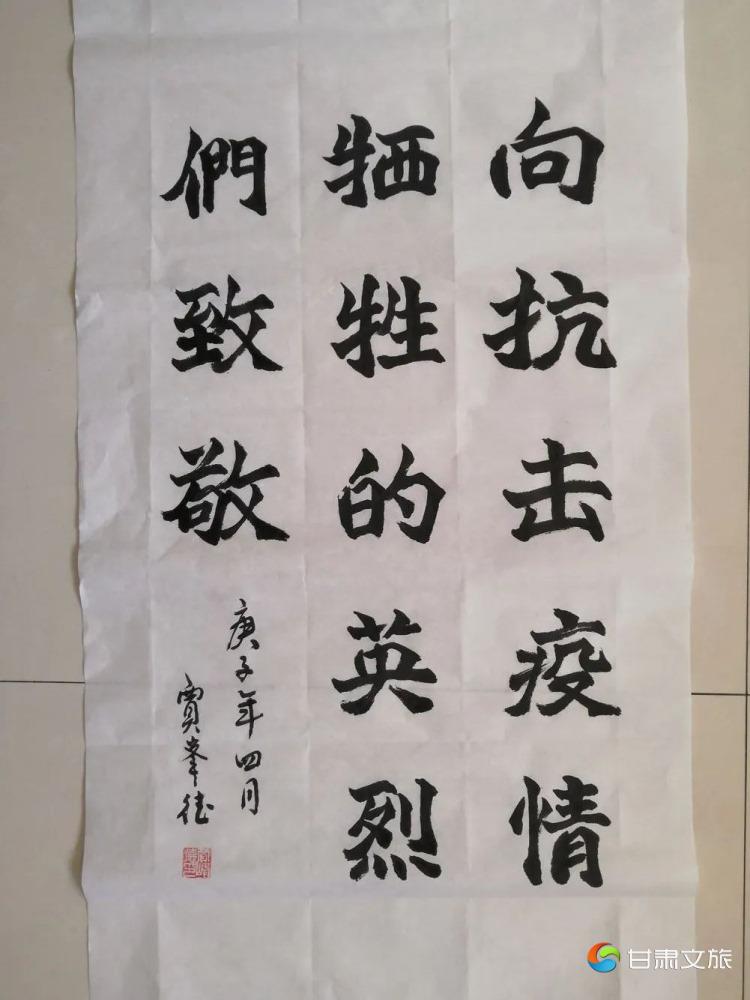 向抗击疫情
牺牲的英烈
們致敬
庚子年四月
賈峯德
甘肃文旅